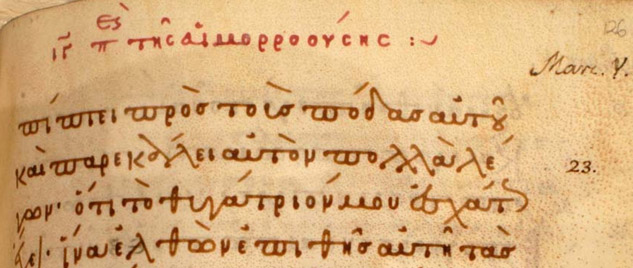 ιγ π τῆς αἱμορροούσης :~
Marc. V.
πίπτει πρὸς τοὺς πόδας αὐτοῦ
καὶ παρεκάλει αὐτὸν πολλὰ λέ
23.
γων· ὅτι τὸ θυγάτριόν μου ἐσχάτ
ἔχει· ἵνα ἐλθὼν ἐπιθῇς αὐτῇ τὰς